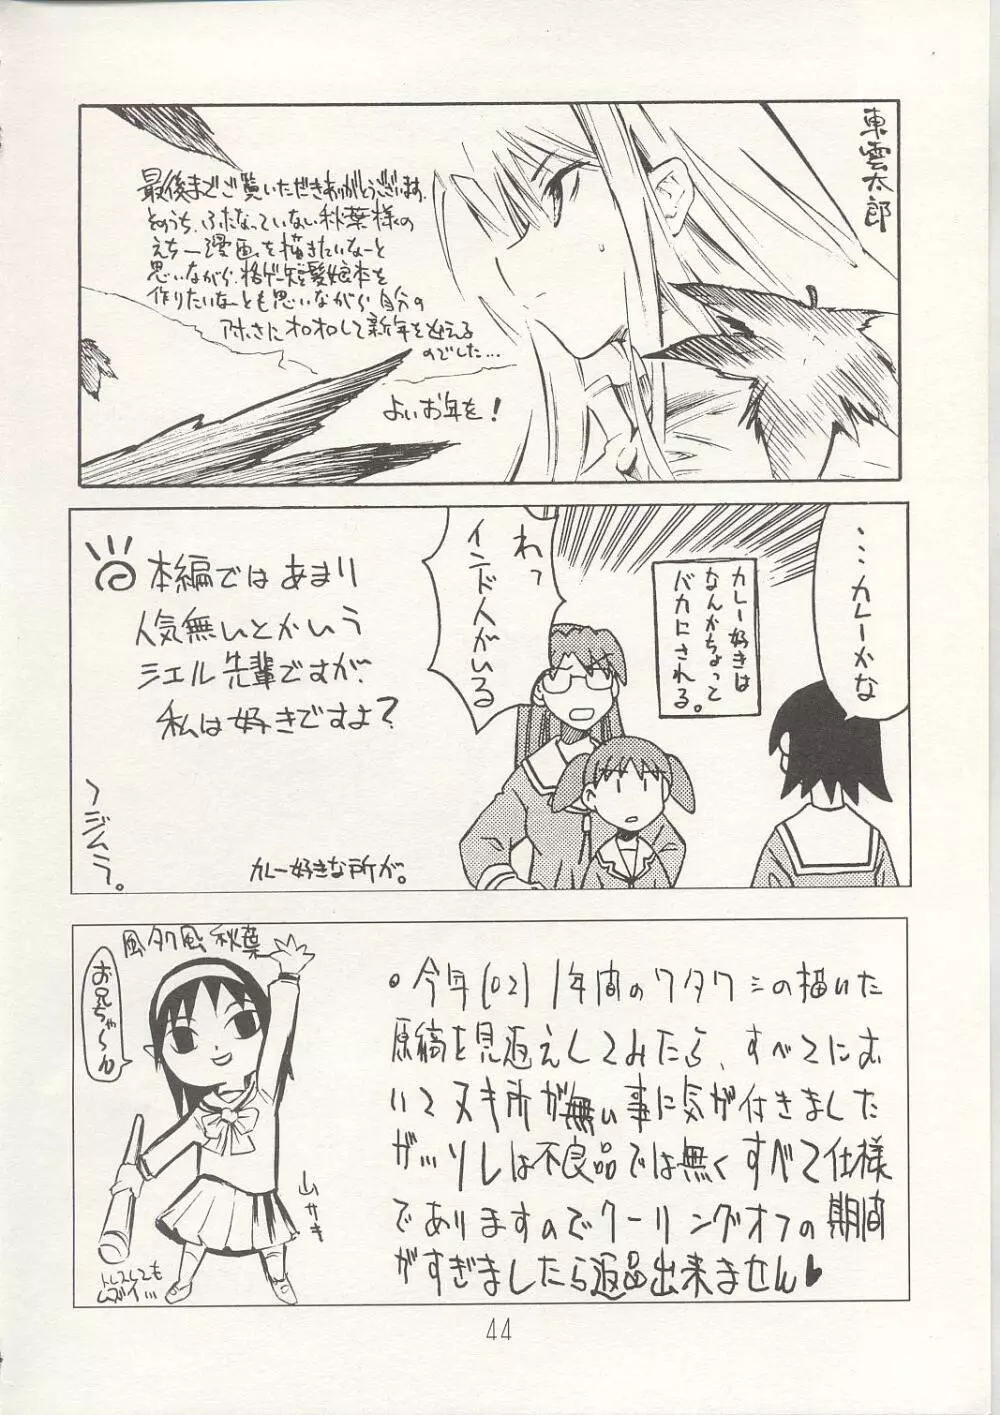 東雲太郎
最後までご覧いただきありがとうございます。
そのうち、ふたなっていない秋葉様の
えちー漫画を描きたいなーと
思いながら、格ゲー短髪娘本を
作りたいなーとも思いながら 自分の
アホさにオロオロして新年を迎える
のでした…
よいお年を!
…カレーかな
カレー好きは
なんかちょって
バカにされる。
わっ
インド人がいる
本編ではあまり
人気無いとかいう
シエル先輩ですが、
私は好きですよ?
カレー好きな所が。
〜ジムラ。
風タク風 秋葉
お兄ちゃ〜ん
ムサキ
トレスしても
ムズイ…
●今年(02)1年間のワタクシの描いた
原稿を見返えしてみたら、すべてにお
いてヌキ所が無い事に気が付きました
が…ソレは不良品では無くすべて仕様
でありますのでクーリングオフの期間
がすぎましたら返品出来ません♥
44